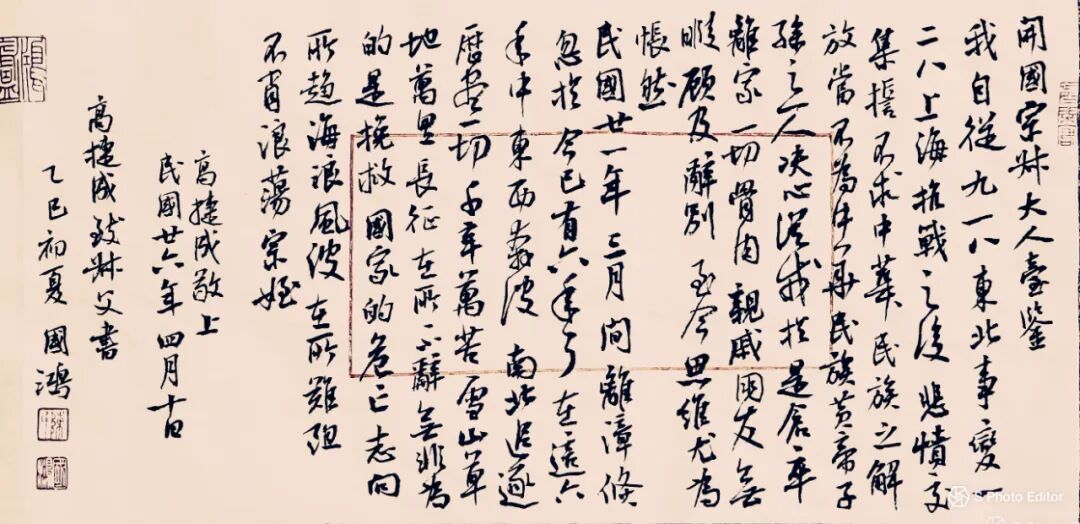 開國宗叔大人臺鑒
我自從九一八東北事變一
二八上海抗戰之後悲憤交
集誓不求中華民族之解
放當不為中華民族黃帝子
孫之一人決心從戎於是倉卒
離家一切骨肉親戚朋友無
暇顧及辭別至今思維尤為
悵然
民國廿一年三月間離漳倏
忽於今已有六年了在這六
年中東西奔波南北追逐
歷盡一切千辛萬苦雪山草
地萬里長征在所不辭無非為
的是挽救國家的危亡志向
所趨海浪風波在所難阻
不肖浪蕩宗姪
高捷成敬上
民國廿六年四月十日
高捷成致叔父書
乙巳初夏 國鴻
S Photo Editor